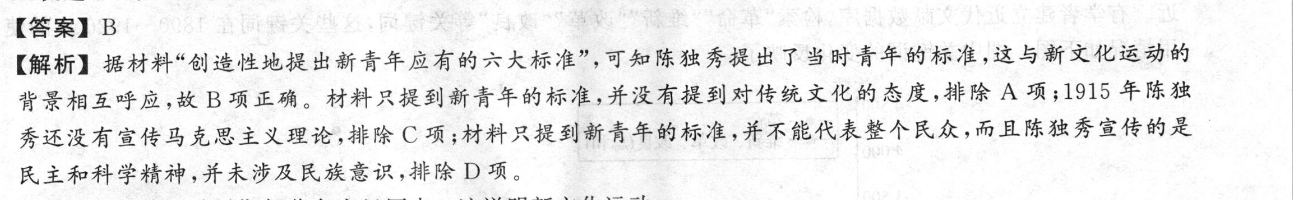 【答案】B
【解析】据材料“创造性地提出新青年应有的六大标准”,可知陈独秀提出了当时青年的标准,这与新文化运动的
背景相互呼应,故 B 项正确。材料只提到新青年的标准,并没有提到对传统文化的态度,排除 A 项;1915 年陈独
秀还没有宣传马克思主义理论,排除 C 项;材料只提到新青年的标准,并不能代表整个民众,而且陈独秀宣传的是
民主和科学精神,并未涉及民族意识,排除 D 项。